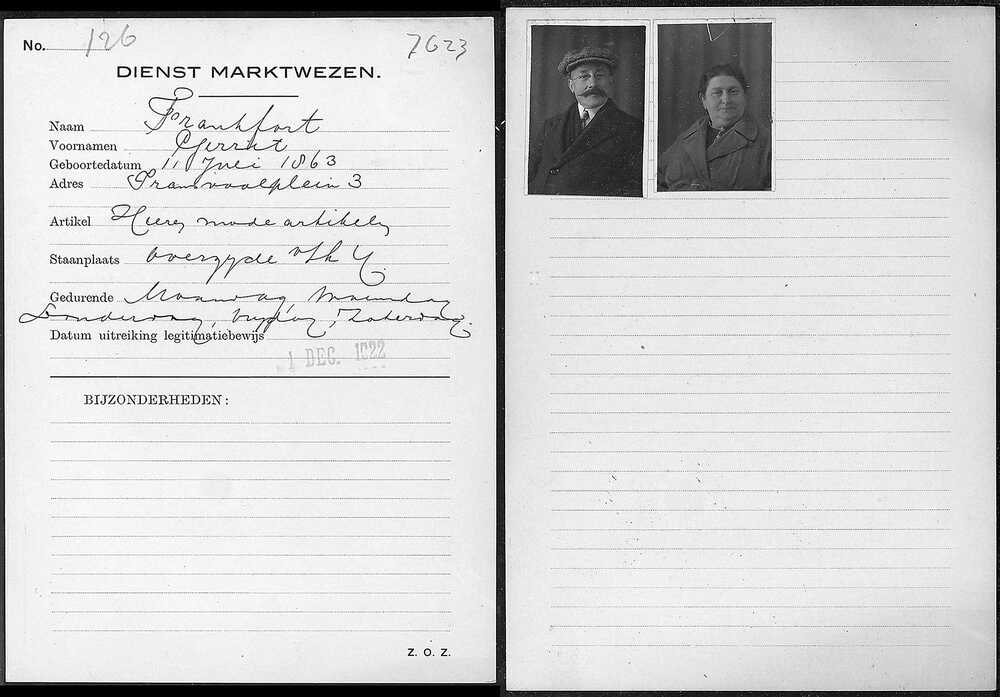 No. 126 7623
DIENST MARKTWEZEN.
Naam Frankfort
Voornamen Gerrit
Geboortedatum 11 Juli 1863
Adres Transvaalplein 3
Artikel mode artikelen
Staanplaats overzyde v/h Y.
Gedurende Maandag, Woensdag
Donderdag, vrydag, Zaterdag.
Datum uitreiking legitimatiebewijs
1 DEC. 1922
BIJZONDERHEDEN:
Z. O. Z.